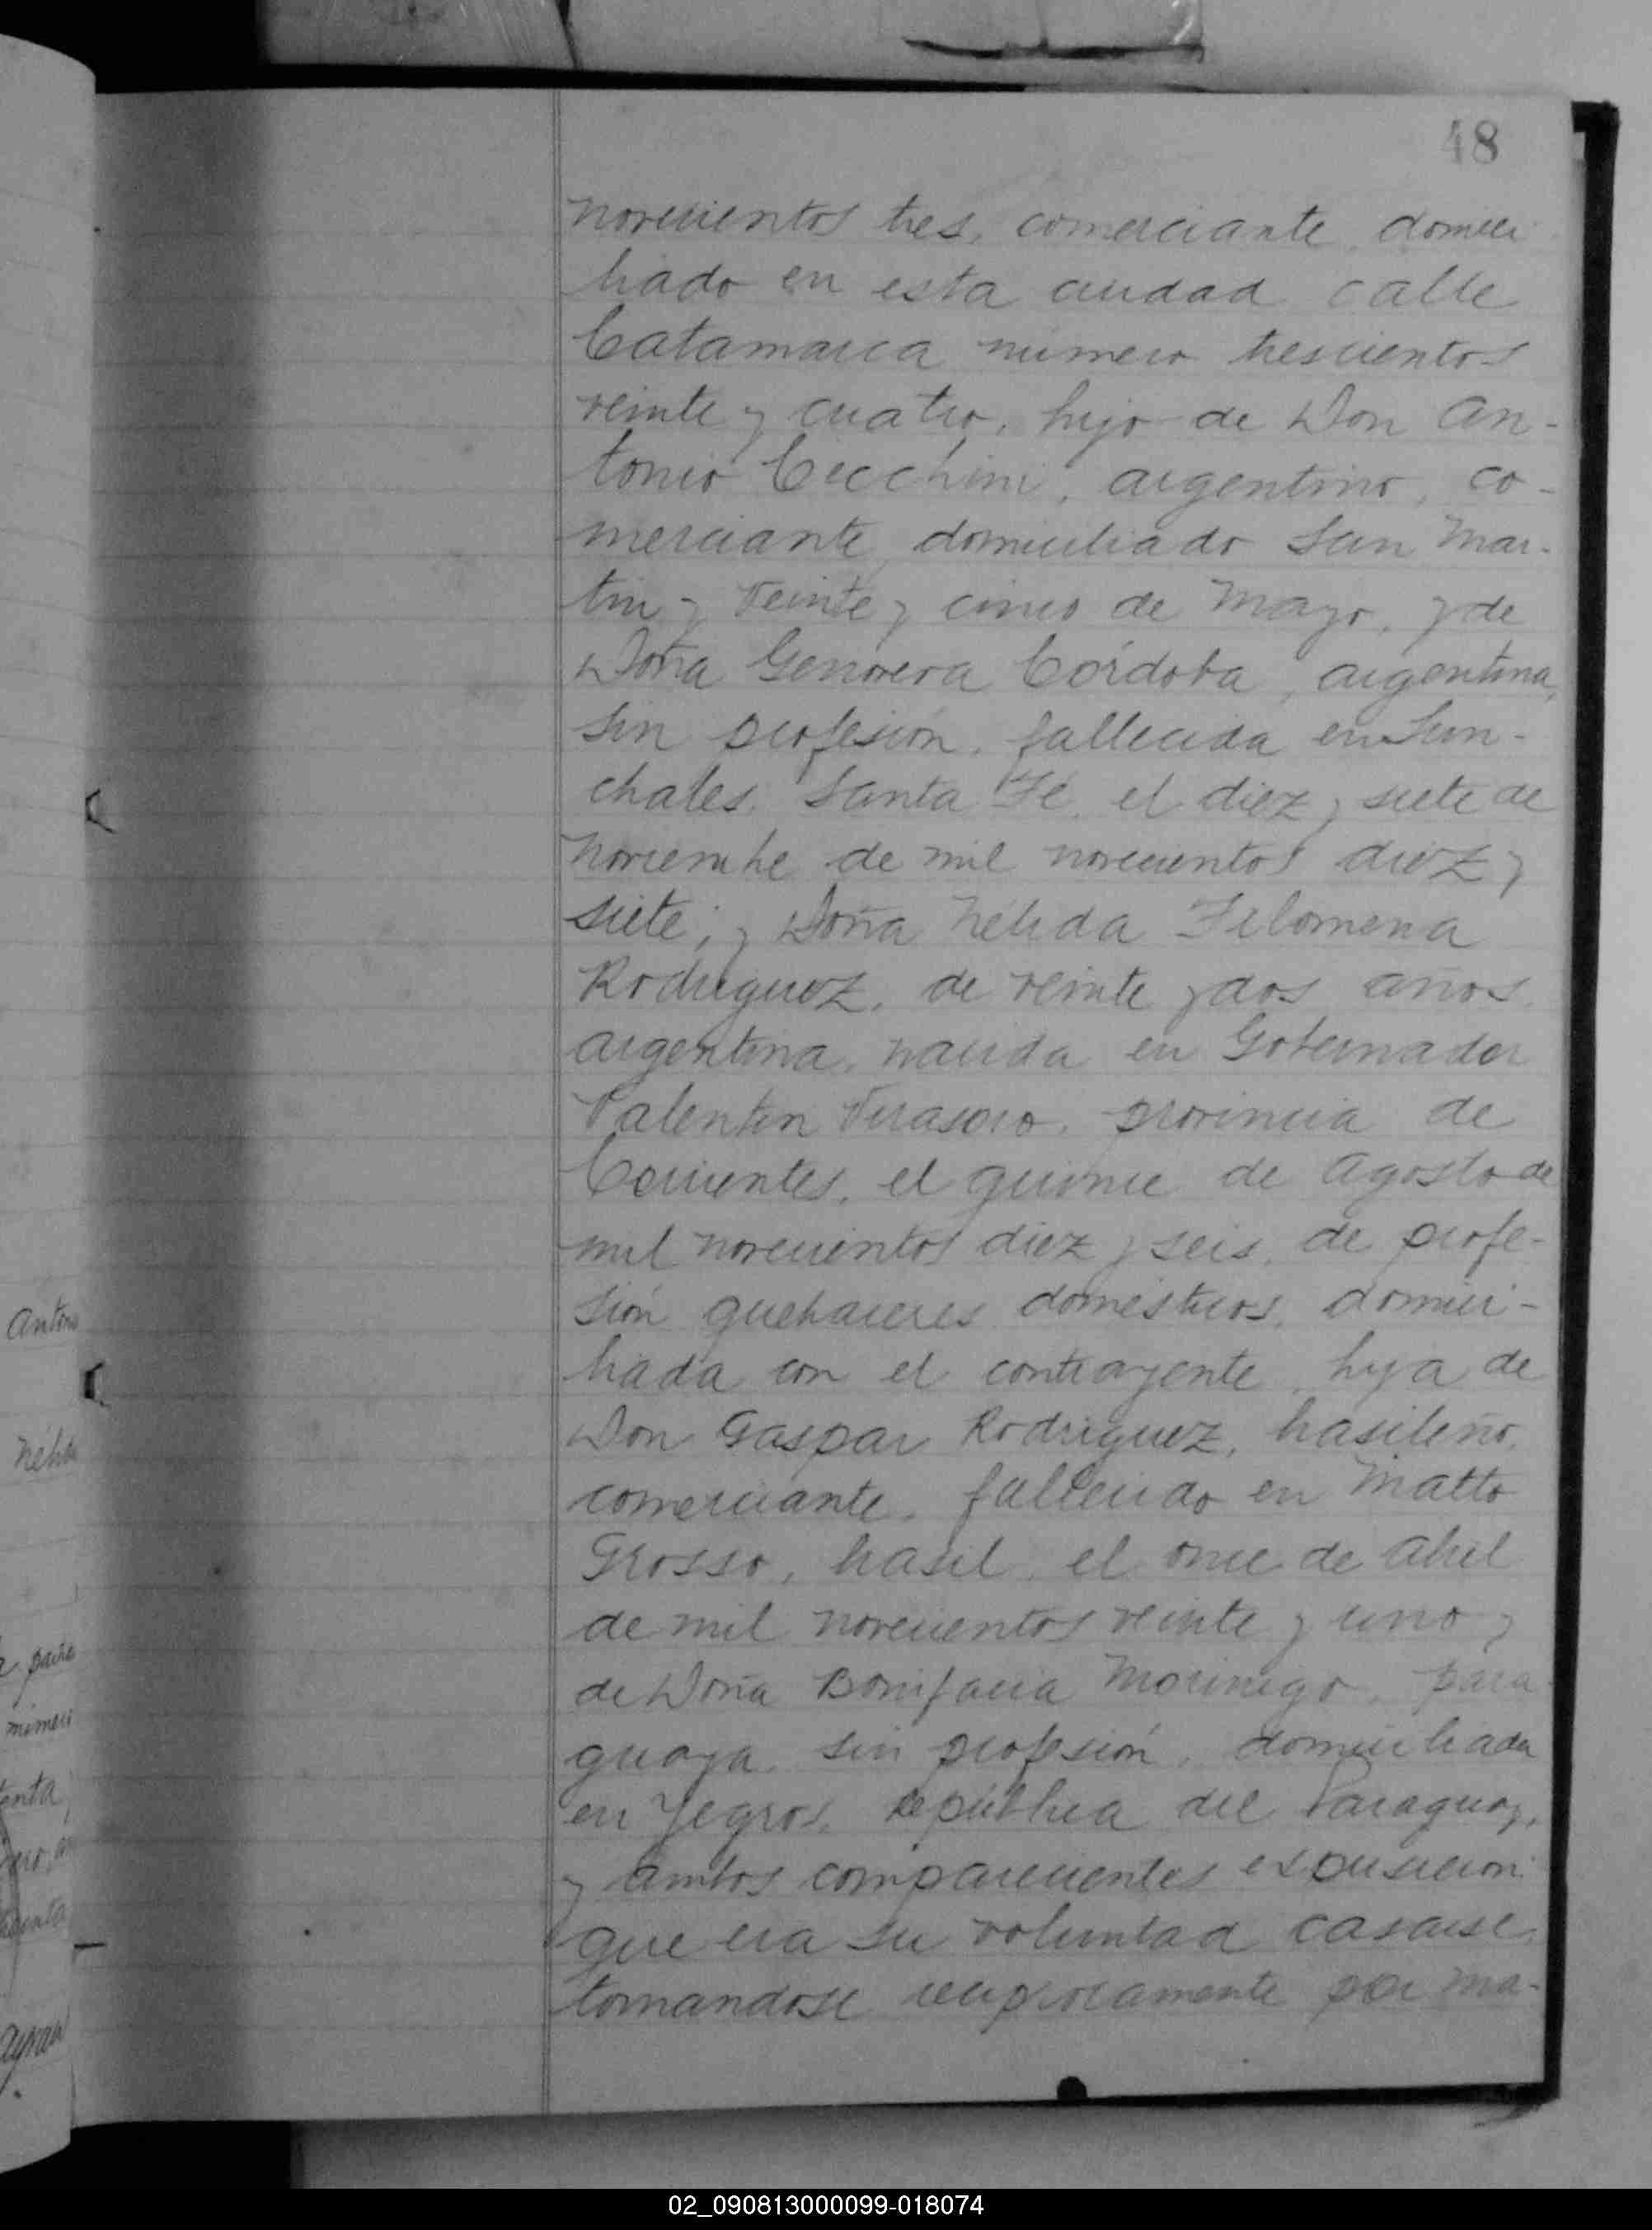 48
novecientos tres, comerciante, domici
liado en esta ciudad calle
Catamarca número trescientos
veinte y cuatro, hijo de Don An-
tonio Cecchini, argentino, co-
merciante, domiciliado San Mar-
tin y Veinte y cinco de Mayo, y de
Doña Genoveva Córdoba, argentina,
sin profesión, fallecida en Sun-
chales, Santa Fé, el diez y siete de
Noviembre de mil novecientos diez y
siete; y Doña Nélida Filomena
Rodriguez, de veinte y dos años,
argentina, nacida en Gobernador
Valentin Virasoro, provincia de
Corrientes, el quince de Agosto de
mil novecientos diez y seis, de profe-
sión quehaceres domésticos, domici-
liada con el contrayente, hija de
Don Gaspar Rodriguez, brasileño,
comerciante, fallecido en Matto
Grosso, brasil, el once de Abril
de mil novecientos veinte y uno y
de Doña Bonifacia Morinigo, para
guaya, sin profesión, domiciliada
en Yegros, República del Paraguay,
y ambos comparecientes expusieron:
que era su voluntad casarse,
tomandose reciprocamente por ma-
Antonio
Nélida
02_090813000099-018074